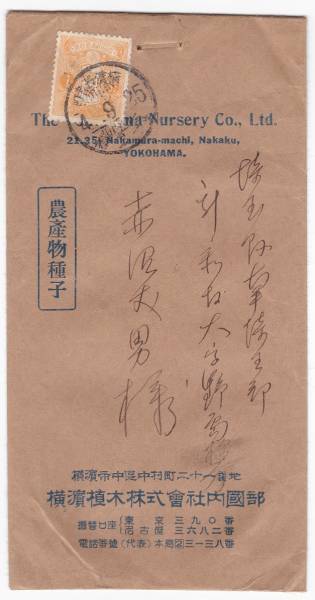 The Yokohama Nursery Co., Ltd.
21-35, Nakamura-machi, Nakaku,
YOKOHAMA.
農產物種子
埼玉縣南埼玉郡
新和村大字野島
赤沼丈男様
橫濱市中區中村町二十一番地
橫濱植木株式會社內國部
振替口座 東京 三九〇番
名古屋 三六八二番
電話番號(代表)本局 三一三八番